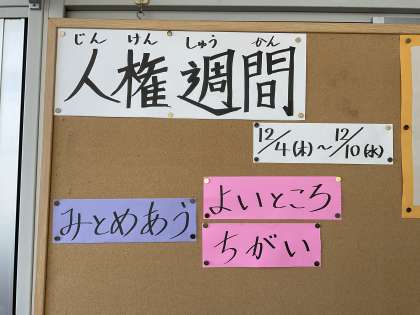 じんけんしゅうかん
人権週間
12/4(木)～12/10(水)
みとめあう
よいところ
ちがい